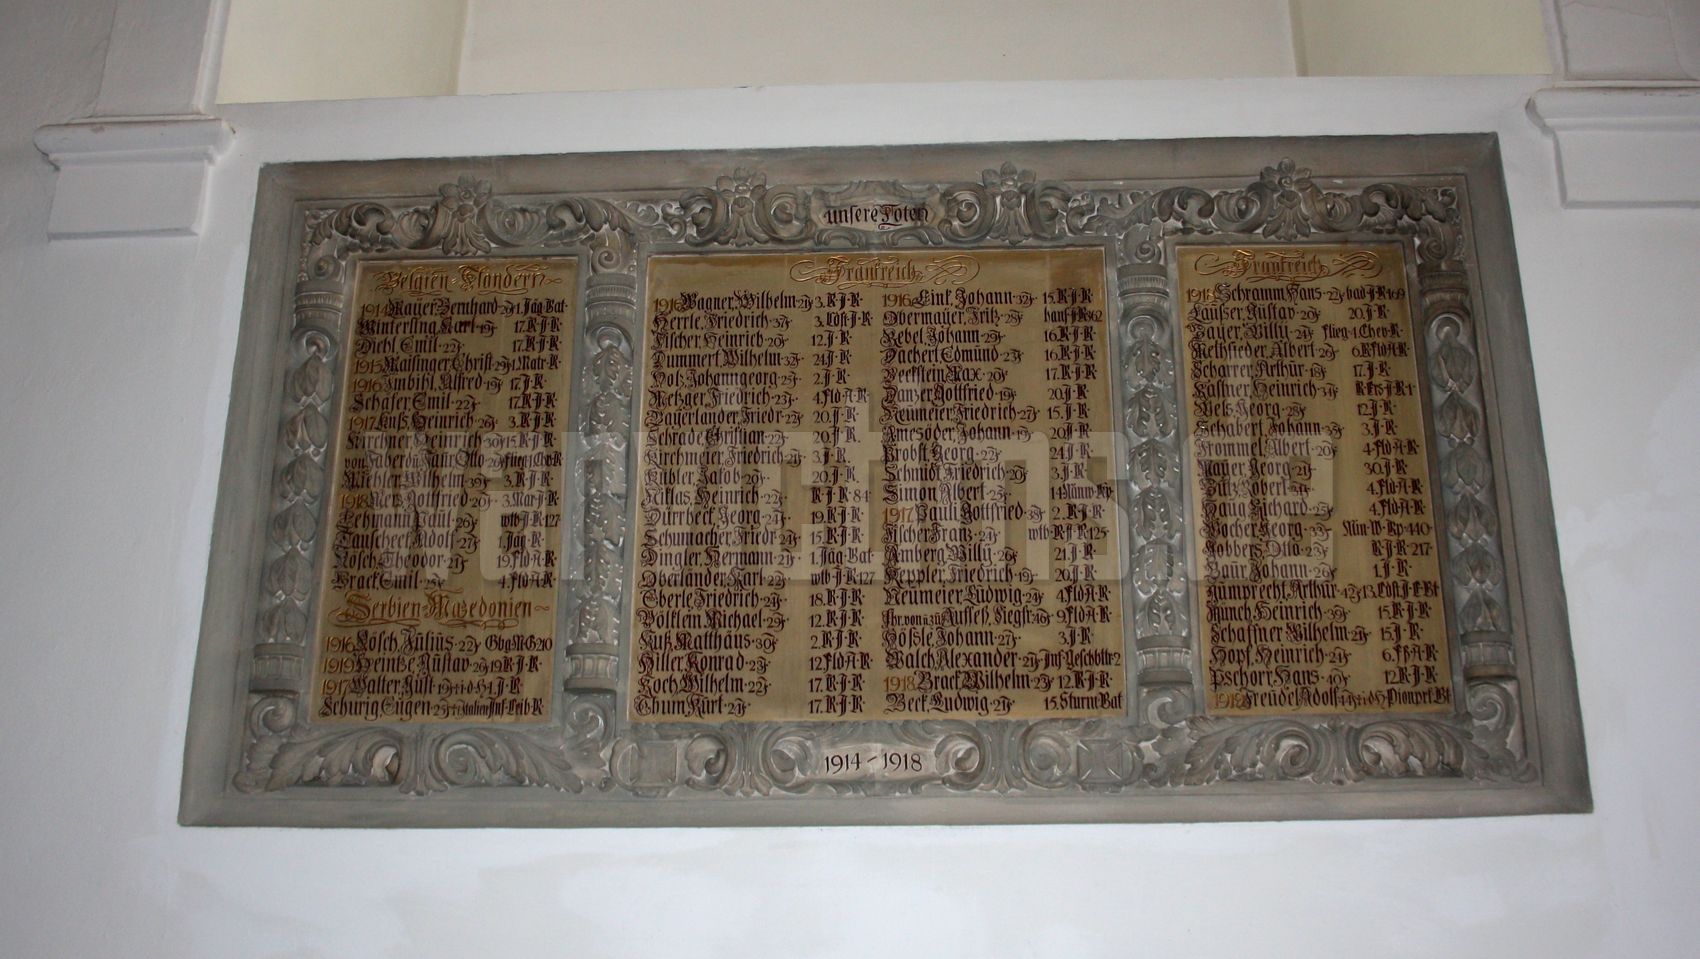 unsere Toten
Belgien-Flandern
1914 Mayer, Bernhard · 29J · 1. Jäg · Bat
Winterling, Karl · 19J · 17. R · J · R ·
Diehl, Emil · 22J · 17. R · J · R ·
1915 Maisinger, Christ · 29J · 1. Matr · R ·
1916 Imbihl, Alfred · 19J · 17 · J · R ·
Schäfer, Emil · 22J · 17. R · J · R ·
1917 Kuß, Heinrich · 26J · 3. R · J · R ·
Kirchner, Heinrich · 30J · 15. R · J · R ·
von Faber du Faur, Otto
Miehler, Wilhelm · 39J · 3. R · J · R ·
1918 Merz, Gottfried · 20J · 3. Mar · J · R ·
Lehmann, Paul · 26J · wtb · J · R · 127
Tauscheck, Adolf · 27J · 1. Jäg · R ·
Nosch, Theodor · 21J · 19. Fld · A · R ·
Brack, Emil · 4. Fld · A · R ·
Serbien-Mazedonien
1916 Lösch, Julius · 22J · Gbg · M · G · 210
1919 Heintze, Gustav · 19 R · J · R ·
1917 Walter, Gust
Schurig, Eugen · Italien Inf · Leib · R ·
Frankreich
1914 Wagner, Wilhelm · 3. R · J · R ·
Herrle, Friedrich · 37J · 3. Ldst · J · R ·
Fischer, Heinrich · 20J · 12. J · R ·
Dummert, Wilhelm · 24. J · R ·
Holz, Johanngeorg · 25J · 2. J · R ·
Metzger, Friedrich · 23J · 4. Fld · A · R ·
Bayerlander, Friedr · 22J · 20. J · R ·
Schrade, Christian · 22J · 20. J · R ·
Kirchmeier, Friedrich · 3. J · R ·
Kübler, Jakob · 20J · 20. J · R ·
Niklas, Heinrich · 22J · R · J · R · 84 ·
Dürrbeck, Georg · 24J · 19. R · J · R ·
Schumacher, Friedr · 24J · 15. R · J · R ·
Dingler, Hermann · 21J · 1. Jäg · Bat ·
Oberländer, Karl · 22J · wtb · J · R · 127
Eberle, Friedrich · 18. R · J · R ·
Völklein, Michael · 29J · 12. R · J · R ·
Kuß, Matthäus · 30J · 2. R · J · R ·
Hiller, Konrad · 23J · 12. Fld · A · R ·
Koch, Wilhelm · 22J · 17. R · J · R ·
Thum, Kurt · 17. R · J · R ·
1916 Eink, Johann · 32J · 15. R · J · R ·
Obermayer, Fritz · 28J · hanf · J · R · 362
Rebel, Johann · 29J · 16. R · J · R ·
Dachert, Edmund · 23J · 16. R · J · R ·
Beckstein, Max · 20J · 17. R · J · R ·
Danzer, Gottfried · 19J · 20. J · R ·
Neumeier, Friedrich · 27J · 15. J · R ·
Amesöder, Johann · 19J · 20. J · R ·
Probst, Georg · 24. J · R ·
Schmidt, Friedrich · 20J · 3. J · R ·
Simon, Albert · 25J
1917 Pauli, Gottfried · 2. R · J · R ·
Fischer, Franz · 24J · wtb · R · J · R · 125 ·
Amberg, Willy · 26J · 21. J · R ·
Keppler, Friedrich · 19J · 20. J · R ·
Neumeier, Ludwig · 4. Fld · A · R ·
Frhr. von u. zu Aufseß, Siegfr · 9. Fld · A · R ·
Hößle, Johann · 27J · 3. J · R ·
Walch, Alexander · Inf · Geschbttr · 2
1918 Brack, Wilhelm · 23J · 12. R · J · R ·
Beck, Ludwig · 15. Sturm · Bat
Frankreich
1918 Schramm, Hans · 22J · bad · J · R · 169
Läußer, Gustav · 20J · 20. J · R ·
Bayer, Willy · 24J · Flieg · 1. Chev · R ·
Melhfieder, Albert · 6. R · Fld · A · R ·
Scharrer, Arthur · 17. J · R ·
Kaßner, Heinrich · 34J · R · Ers · J · R · 1 ·
Bels, Georg · 12. J · R ·
Schabert, Johann · 3. J · R ·
Frommel, Albert · 20J · 4. Fld · A · R ·
Mayer, Georg · 21J · 30. J · R ·
Butz, Robert · 4. Fld · A · R ·
Haug, Richard · 25J · 4. Fld · A · R ·
Bocher, Georg · 33J · Min · W · Kp · 440 ·
Robbers, Otto · 23J · R · J · R · 217 ·
Baur, Johann · 26J · 1. J · R ·
Zumprecht, Arthur · 42J
Münch, Heinrich · 39J · 15. R · J · R ·
Schaffner, Wilhelm · 15. J · R ·
Hopf, Heinrich · 24J
Pschorr, Hans · 40J · 12. R · J · R ·
1919 Freudel, Adolf · Pion
1914-1918